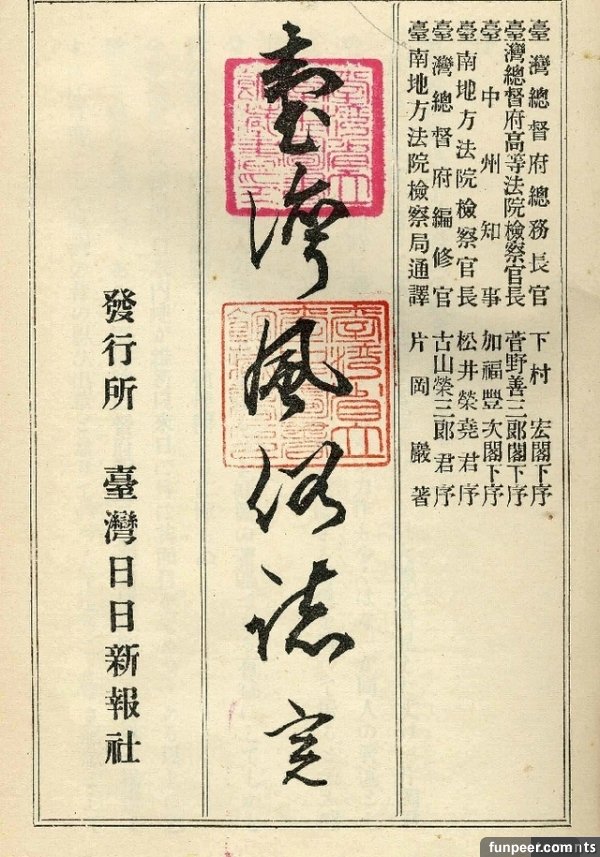 臺灣總督府總務長官 下村 宏閣下序
臺灣總督府高等法院檢察官長 菅野善三郞閣下序
臺中州知事 加福豐次閣下序
臺南地方法院檢察官長 松井榮堯君序
臺灣總督府編修官 古山榮三郞君序
臺南地方法院檢察局通譯 片岡巖著
臺灣風俗誌 完
發行所 臺灣日日新報社
funpeer.com